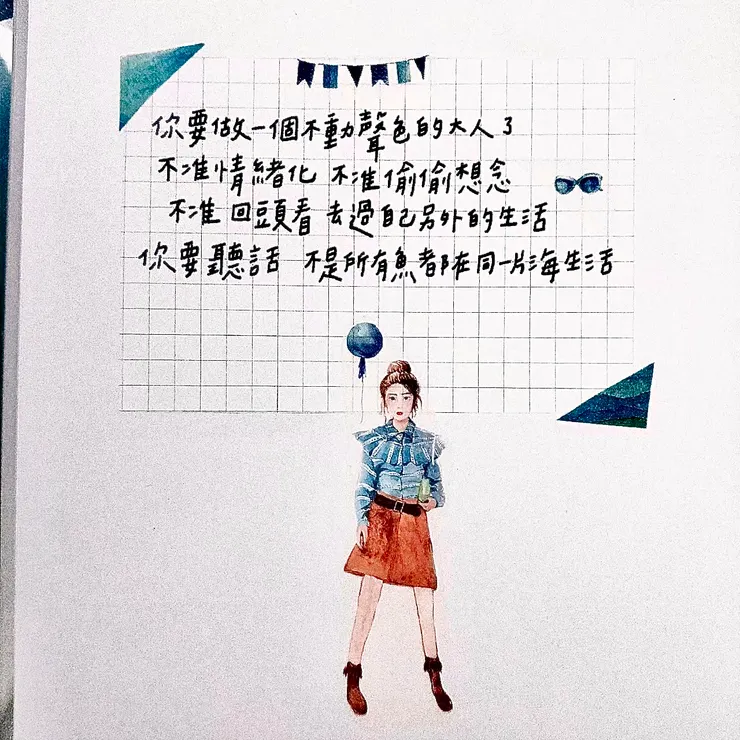 你要做一個不動聲色的大人了
不准情緒化 不准偷偷想念
不准回頭看 去過自己另外的生活
你要聽話 不是所有魚都在同一片海生活